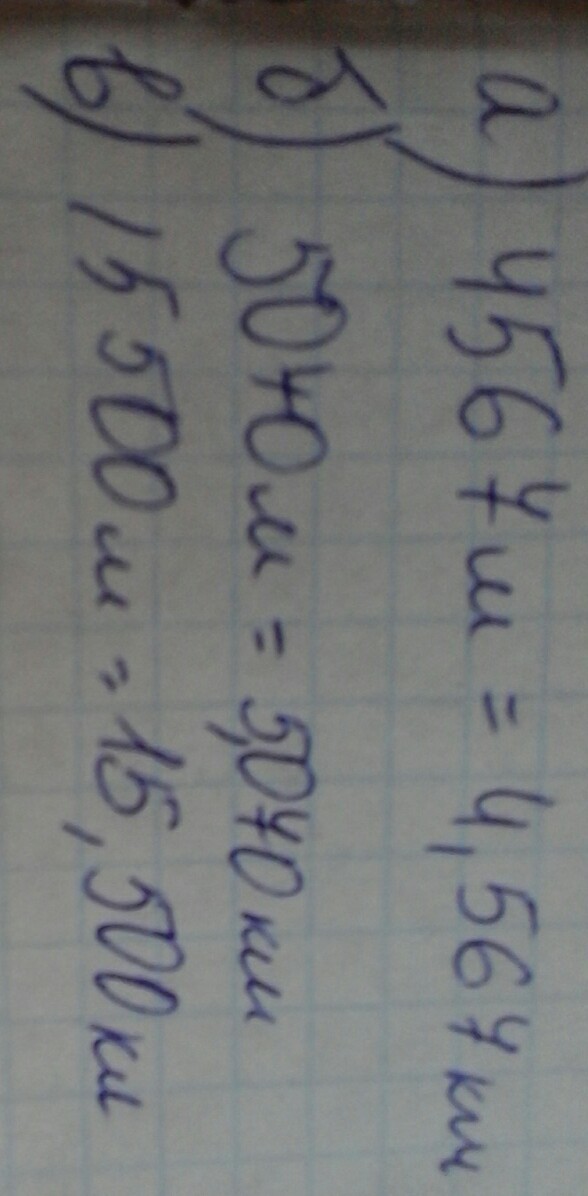 а) 4567 м = 4,567 км
б) 5070 м = 5,070 км
в) 15 500 м = 15,500 км